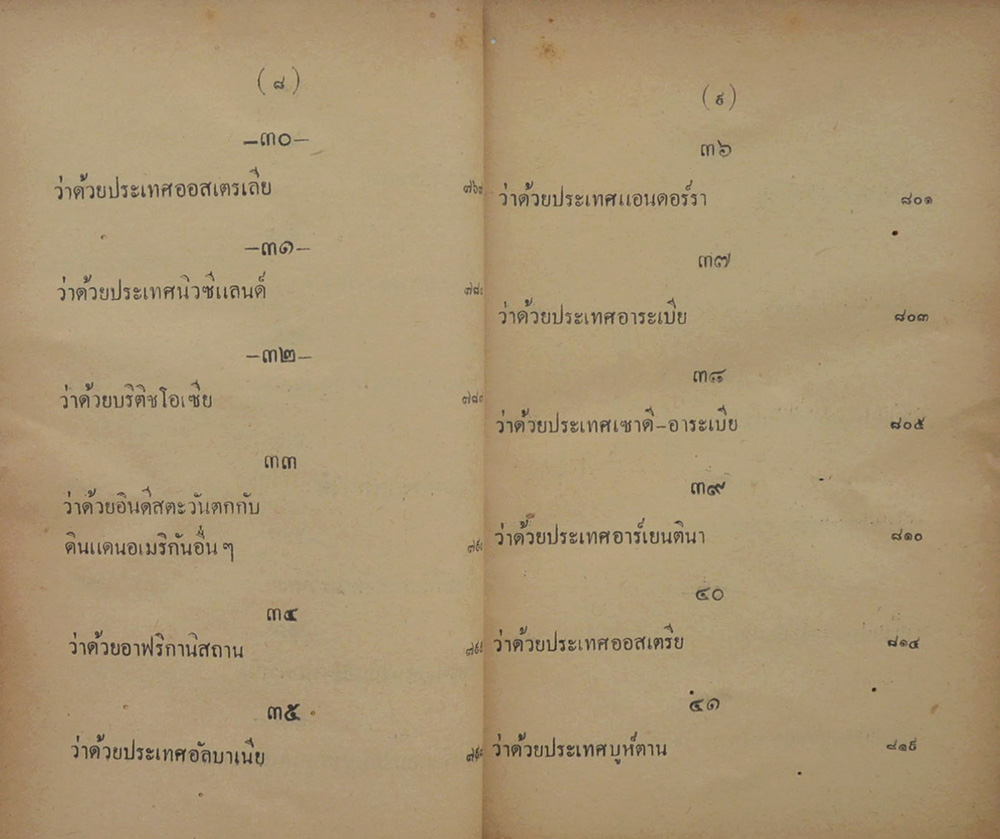 (๘)
–๓๐–
ว่าด้วยประเทศออสเตรเลีย
–๓๑–
ว่าด้วยประเทศนิวซีแลนด์
–๓๒–
ว่าด้วยบริติชโอเซีย
๓๓
ว่าด้วยอินดีสตะวันตกกับ
ดินแดนอเมริกันอื่น ๆ
๓๔
ว่าด้วยอาฟริกานิสถาน
๓๕
ว่าด้วยประเทศอัลบาเนีย
(๙)
๓๖
ว่าด้วยประเทศแอนดอร์รา ๘๐๑
๓๗
ว่าด้วยประเทศอาระเบีย ๘๐๓
๓๘
ว่าด้วยประเทศเซาดี–อาระเบีย ๘๐๕
๓๙
ว่าด้วยประเทศอาร์เยนตินา ๘๑๐
๔๐
ว่าด้วยประเทศออสเตรีย ๘๑๔
๔๑
ว่าด้วยประเทศบูห์ตาน ๘๑๙